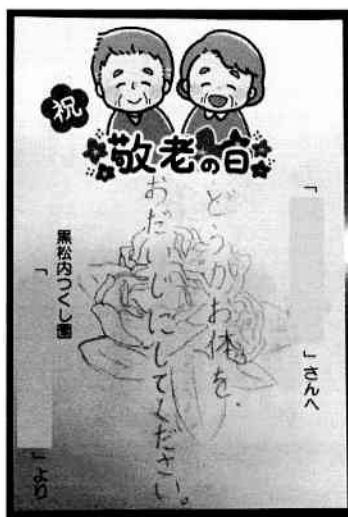 祝
敬老の日
「 」さんへ
どうかお体を、
おだいじにしてください。
黒松内つくし園
「 」より